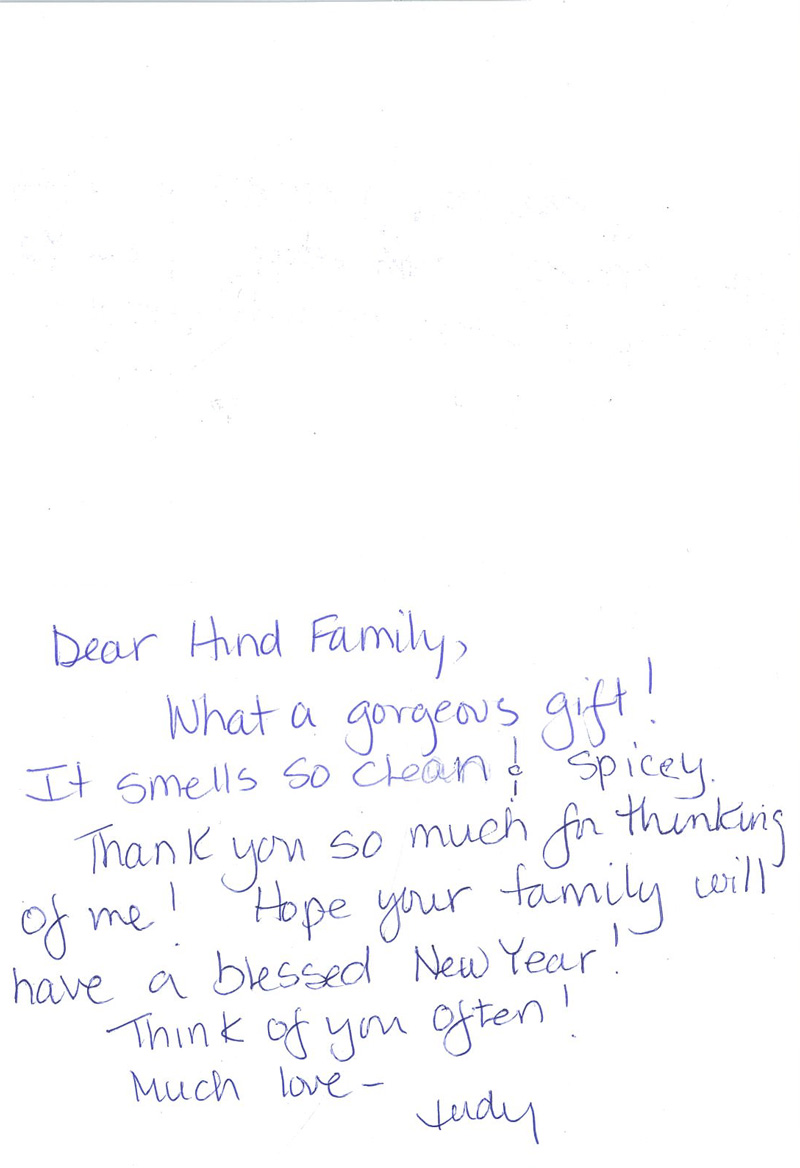 Dear Hind Family,
What a gorgeous gift!
It smells so clean & spicey.
Thank you so much for thinking
of me! Hope your family will
have a blessed New Year!
Think of you often!
Much love-
Judy